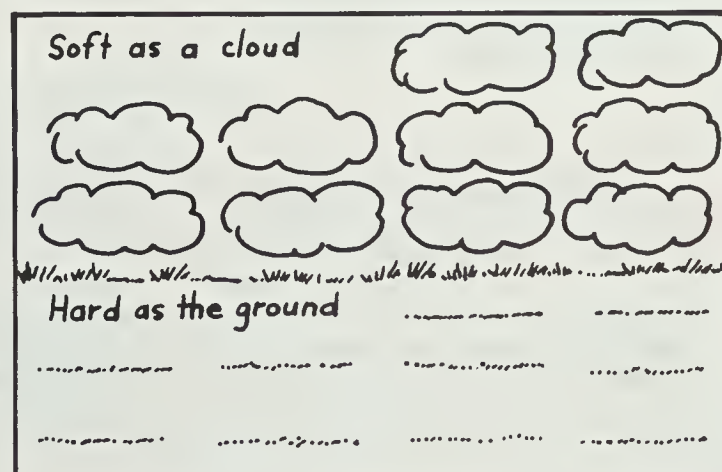 Soft as a cloud
Hard as the ground